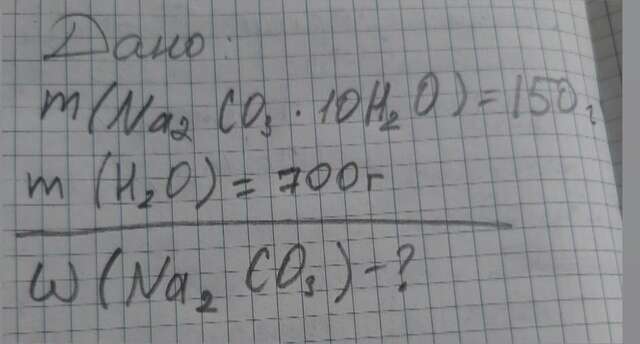 Дано:
m(Na₂CO₃·10H₂O)=150г
m(H₂O)=700г
ω(Na₂CO₃)-?